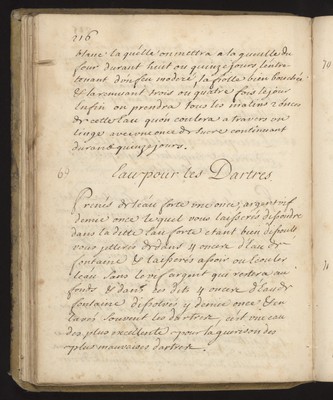 216
blanc laquelle on mettra a la gueulle du
four durant huit ou quinze jours, lentre
tenant d'un feu moderé, la fiolle bien bouchée
& la remuant trois ou quatre fois le jour
Enfin on prendra tous les matins 2 onces
de cette Eau qu'on coulera a travers un
linge avec une once de sucre continuant
durant quinze jours.
69 Eau pour les Dartres.
Prenés de l'eau forte une once, argent vif
demie once lequel vous laisserés dissoudre
dans la ditte Eau forte etant bien dissoult
vous jetterés dedans 4 once d'eau de
fontaine & laisserés assoir ou lecouler
sans le vif argent qui restera au
fonds & dans les dits 4 once d'eau de
fontaine dissolvés y demie once & en
lavés souvent les dartres, c'est une eau
des plus excellente pour la guerison des
plus mauvaises dartres.
70
71